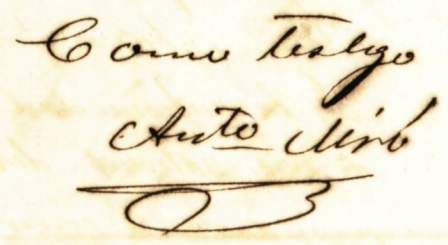 Como testigo
Anto Miró